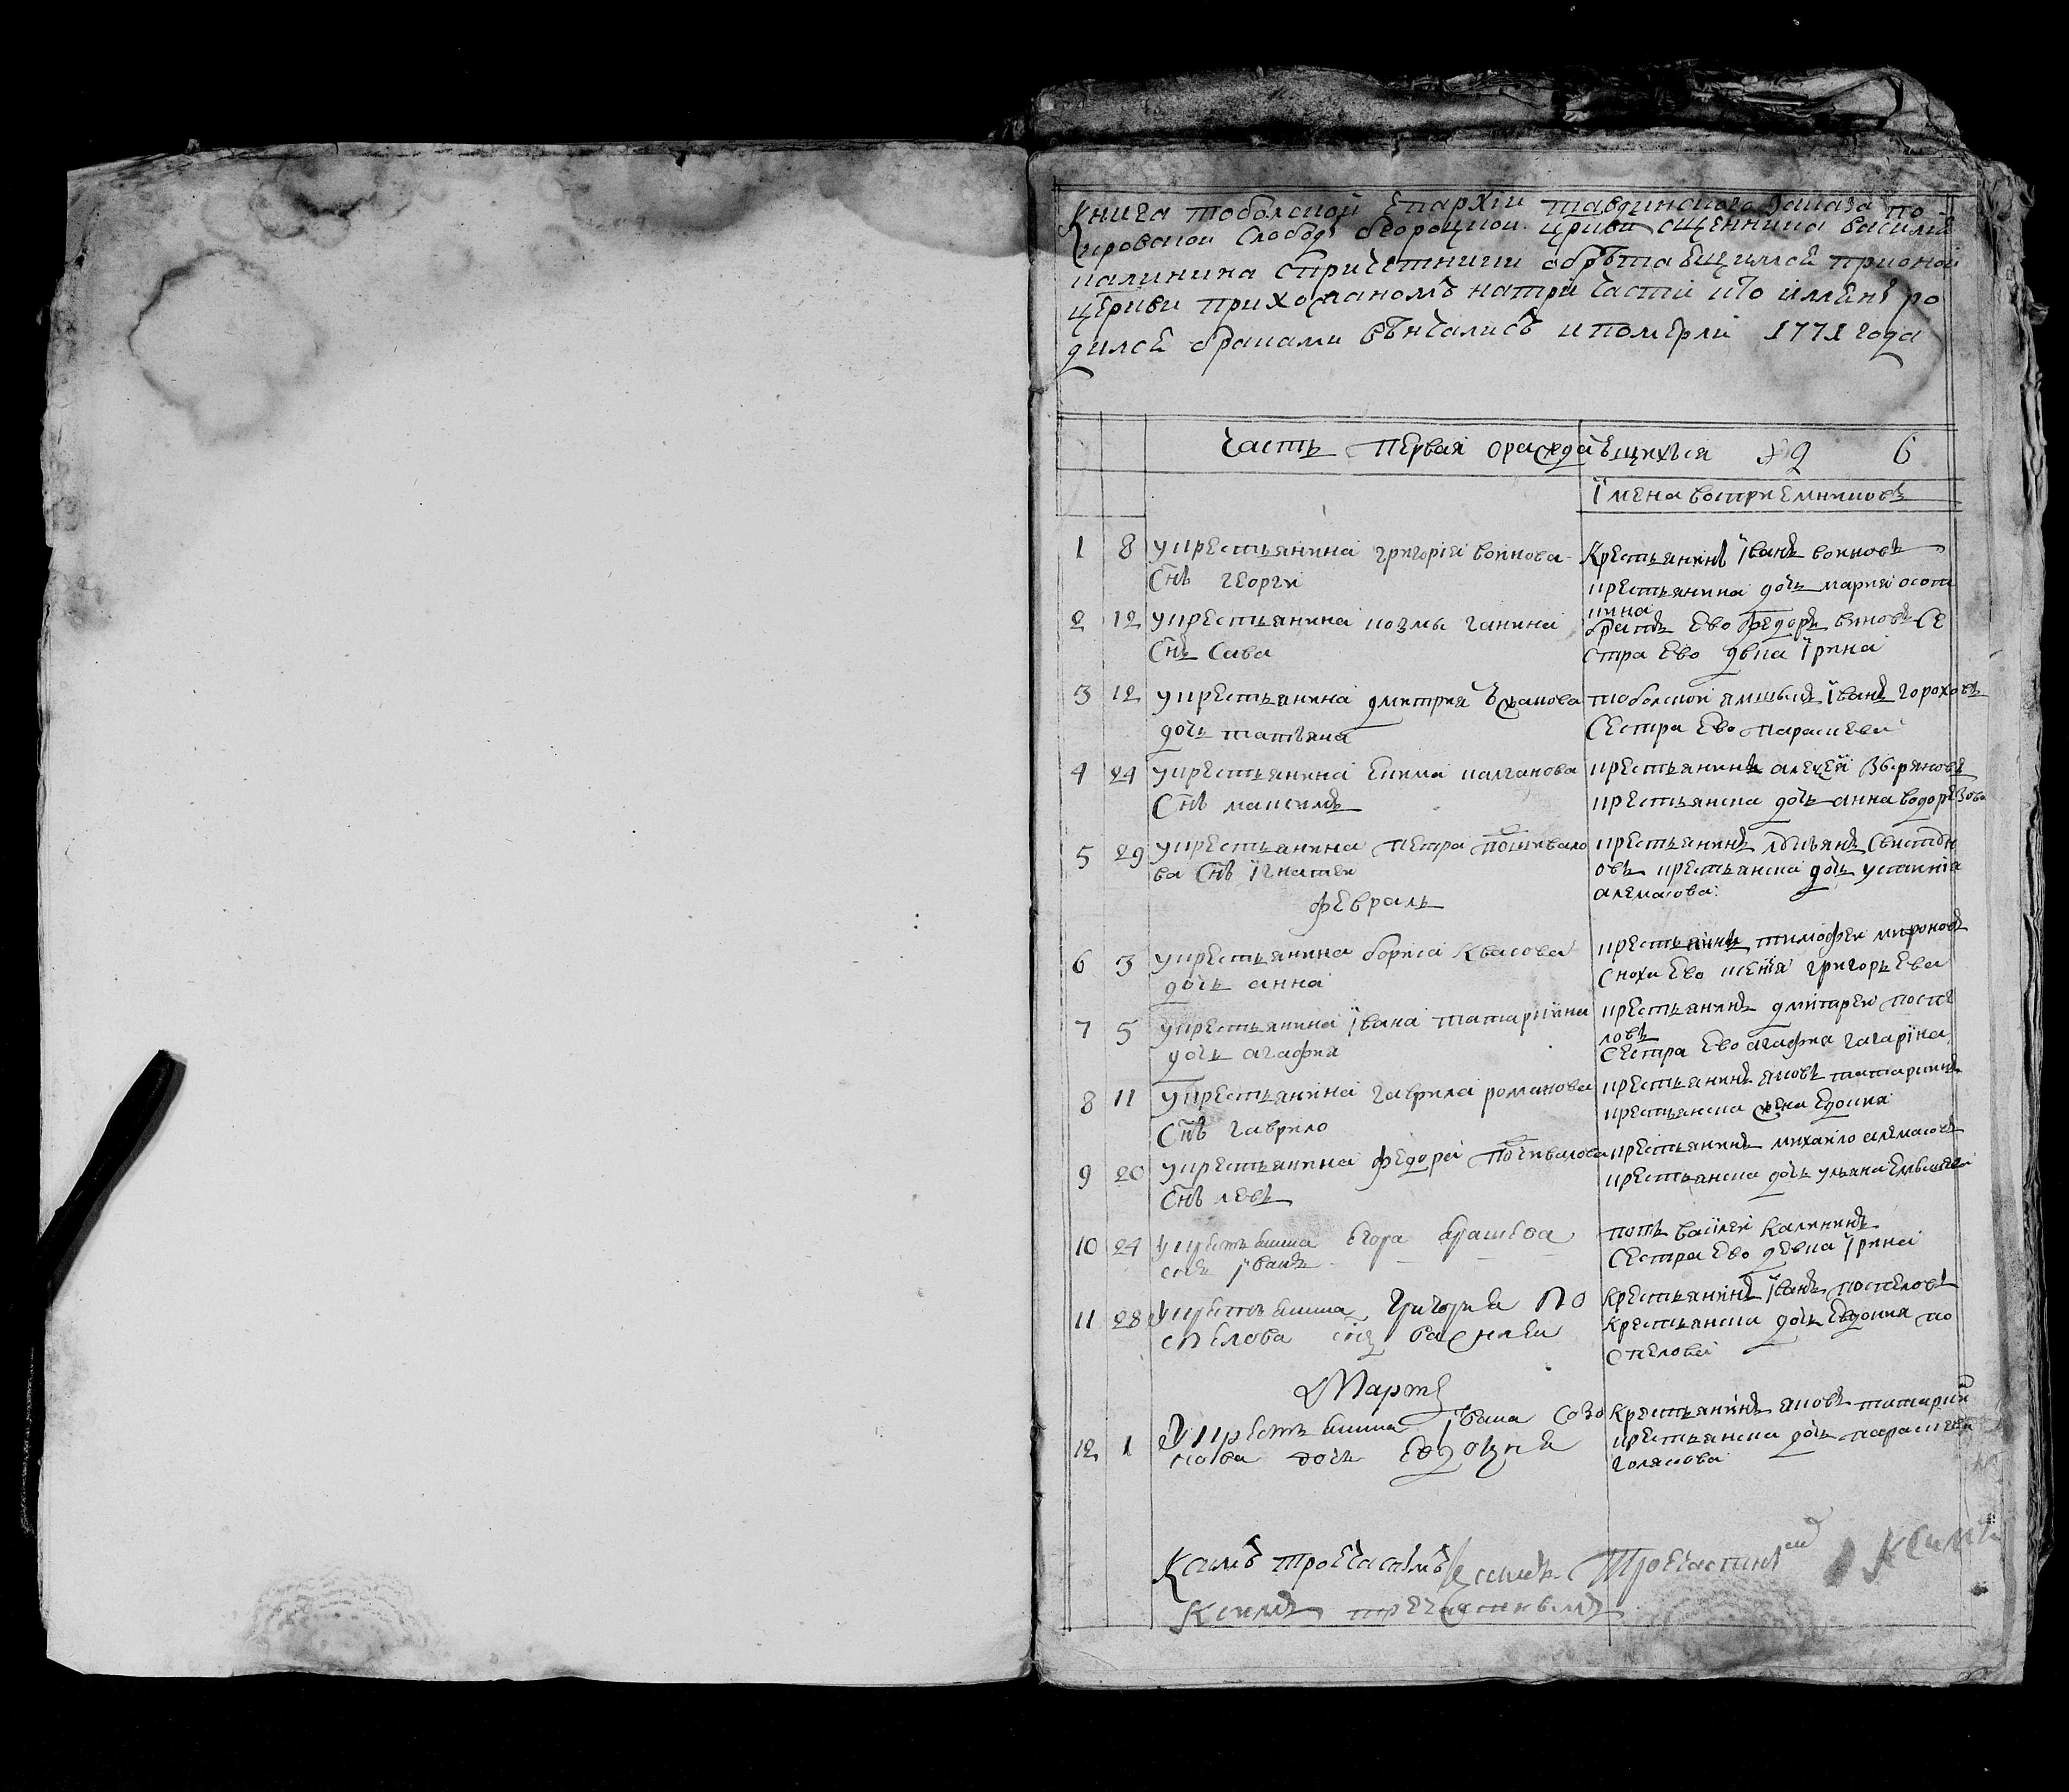 Книга тоболской Епархіи тавдинского заказа по
кровской слободы бгородцкой цркви сщенника василья
калинина спричетники обрѣтаещимся прионой
цЕркви прихожаномъ натри части кто имянѣ ро
дился браками вѣнчались и померли 1771 года
Часть первая ораждаЕщихся 6
Їмена востриЕмниковъ
1 8 укрЕстьянина григоріа воинова
Снъ геѡрги
КрЕстьянинъ їванъ воиновъ
крЕстьянина дочь мария осот
кина
2 12 укрЕстьянина козмы ганина
Снъ Сава
братъ Ево федоръ СЕ
Стра Ево двка їрина
3 12 укрЕстьянина дмитрия
дочь татьяна
тоболской ямщикъ їванъ гороховъ
СЕстра Ево параскЕва
4 24 укрЕстьянина Екима калганова
Снъ максимъ
крЕстьянинъ алеѯѣй звЕряковъ
крЕстьянска дочь анна водорЕзова
5 29 укрЕстьянина пЕтра пошивало
ва Снъ їгнатеи
крЕстьянинъ Свистун
овъ крЕстьянска дочь устинія
алемасова
фЕвраль
6 3 укрЕстьянина бориса Квасова
дочь анна
крЕстьянинъ тимофеи мироновъ
Сноха Ево григорьЕва
7 5 укрЕстьянина ївана татаркина
дочь агафия
крЕстьянинъ дмитреи поспе
ловъ
СЕстра Ево агафия гагаріна
8 11 укрЕстьянина гаврила романова
Снъ гаврило
крЕстьянинъ яковъ татаркинъ
крЕстьянска жена Едокия
9 20 укрЕстьянина фЕдора пошивалова
Снъ левъ
крЕстьянинъ михаило алемасовъ
крЕстьянска дочь ульяна
10 24 укрестьянина Егора
снъ їванъ
попъ василеи Калининъ
СЕстра Ево девка їрина
11 28 укрестьянина григорья По
спЕлова снъ василеи
КрЕстьянинъ їванъ поспЕловъ
КрЕстьянска дочь Евдокия по
спЕлова
Мартъ
12 1 укрестьянина ївана Созо
нова дочь Евдокия
КрЕстьянинъ яковъ татаркин
крЕстьянска дочь параскЕва
голякова
Ксимъ троЕчастнымъ
Ксимъ троЕчастнымъ
Ксимъ